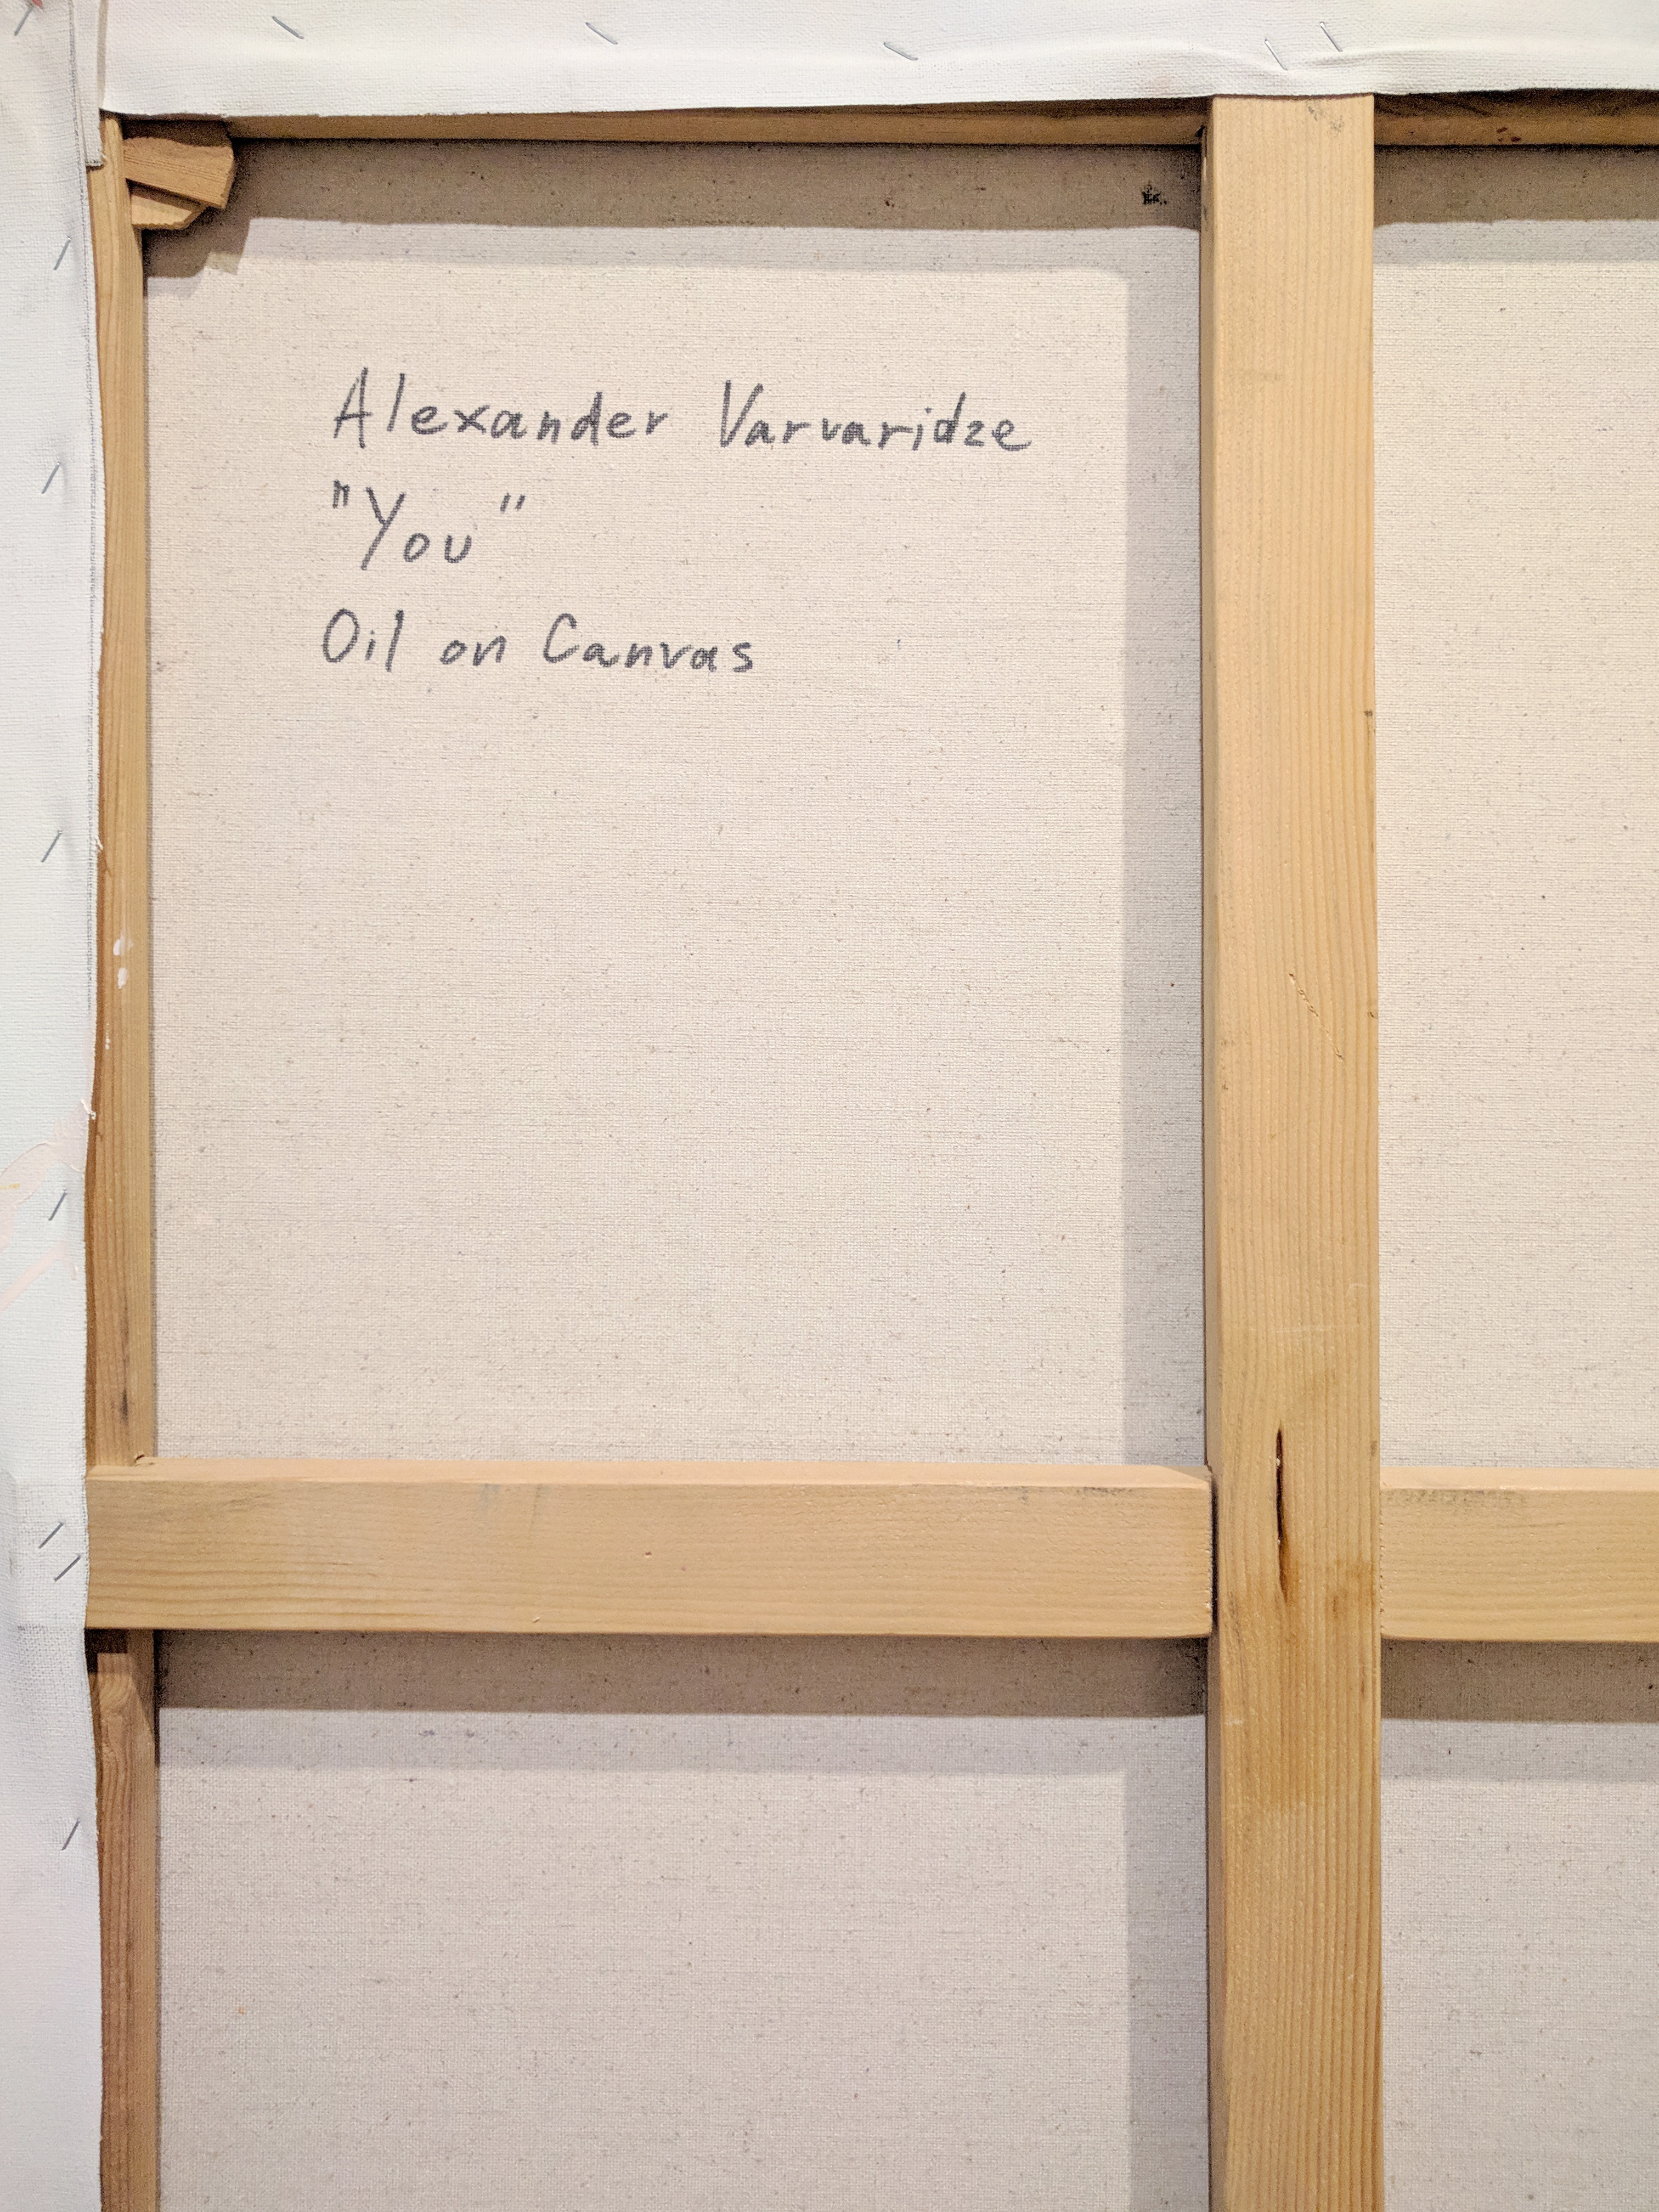 Alexander Varvaridze
"You"
Oil on Canvas